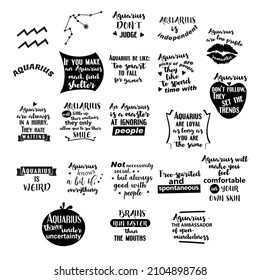 Aquarius
DON'T
JUDGE
AQUARIUS
is
independent
Aquarius
are few people
AQUARIUS
IF YOU MAKE
AN Aquarius
mad, find
shelter
Aquarius BE LIKE:
too smart
TO FALL
for games
Aquarius
IS A master
AT IGNORING
people
Aquarius
They like
to spend
time with
Aquarius
are always
IN A HURRY.
THEY HATE
WAITING
AQUARIUS
their emotions
they only
allow you to see their
SMILE
AQUARIUS
ARE LOYAL
as long as
YOU ARE
the same
Aquarius
DON'T FOLLOW.
THEY SET
THE TRENDS
AQUARIUS
IS WEIRD
Aquarius
knows
a bit of
everything
Not necessarily
social,
but always
good with
people
Free-spirited
and
spontaneous
Aquarius
will always make you
feel
comfortable
in
YOUR
OWN SKIN
Aquarius
thrives under
uncertainty
BRAINS
RUN FASTER
than
THE MOUTHS
Aquarius
THE AMBASSADOR
of open-
mindedness
2104898768